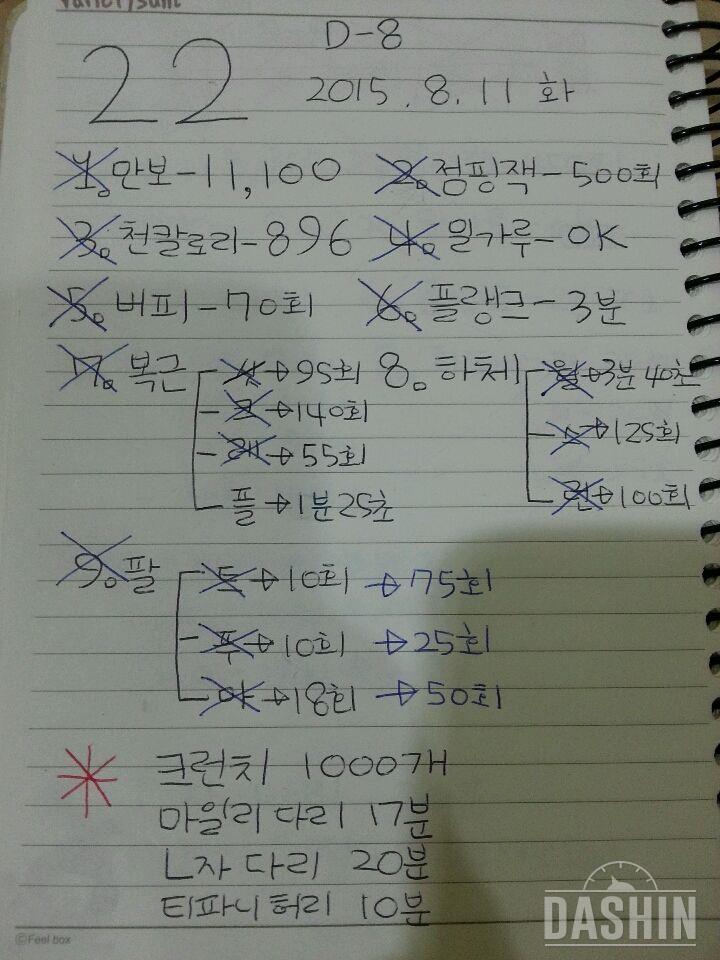 D-8
22
2015. 8. 11 화
1. 만보-11,100 2. 점핑잭-500회
3. 천칼로리-896 4. 밀가루-OK
5. 버피-70회 6. 플랭크-3분
7. 복근 →95회 8. 하체 월→3분 40초
크→140회 스→125회
레→55회 런→100회
플→1분25초
9. 팔 →10회 →75회
푸→10회 →25회
아→18회 →50회
크런치 1000개
마일리 다리 17분
L자 다리 20분
티파니 허리 10분
©Feel box
DASHIN